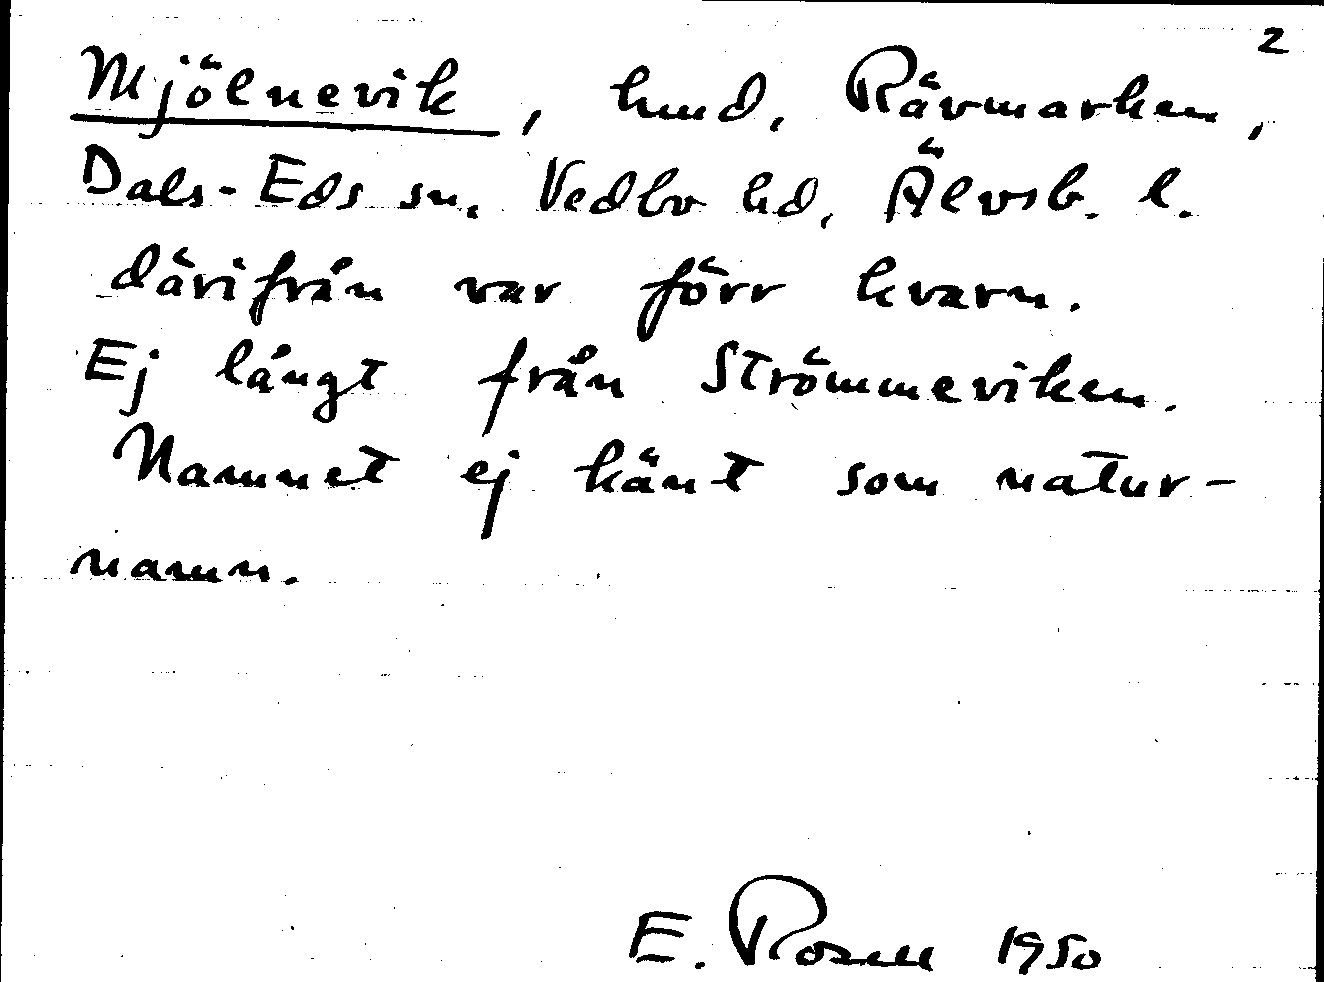 2
Mjölnevik, hmd. Rävmarken,
Dals-Eds sn. Vedbo hd, Älvsb. l.
därifrån var förr kvarn.
Ej långt från Strömmeviken.
Namnet ej känt som natur-
namn.
E. Rosell 1950